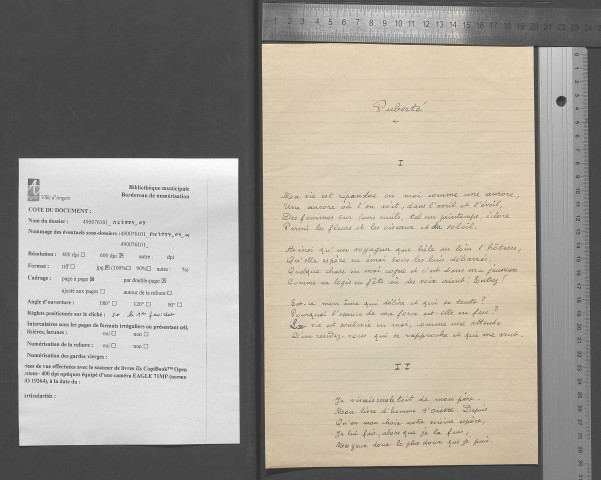 Bibliothèque municipale
Bordereau de numérisation
Ville d'Angers
COTE DU DOCUMENT :
Nom du dossier : 490076101_
Nommage des éventuels sous-dossiers : 490076101_
490076101_
Résolution : 400 dpi ☐ 600 dpi ☒ autre : dpi
Format : tiff ☐ jpg ☒ (100% ☐ 90% ☐ autre : %)
Cadrage : page à page ☒ par double-page ☒
ajusté aux pages ☐ autour de la reliure ☐
Angle d'ouverture : 180° ☐ 120° ☐ 90° ☐
Réglets positionnés sur le cliché : sur le 1er feuillet
Intercalaire sous les pages de formats irréguliers ou présentant œil,
lisières, lacunes : oui ☐ non ☐
Numérisation de la reliure : oui ☐ non ☐
Numérisation des gardes vierges :
ises de vue effectuées avec le scanner de livres i2s CopiBook™ Open
400 dpi optiques équipé d'une caméra EAGLE 71MP (norme
O 19264), à la date du :
articularités :
Puberté
I
Ma vie est répandue en moi comme une aurore,
Une aurore où l'on voit, dans l'avril et l'éveil,
Des femmes sur leurs seuils, tel un printemps, éclore
Parmi les fleurs et les oiseaux et du soleil.
Ainsi qu'un voyageur que hèle au loin l'hôtesse,
Qu'elle espère en émoi sous les buis débarrés,
Quelque chose en moi cogne et c'est dans ma jeunesse
Comme un logis en fête où des voix crient : Entrez !
Est-ce mon âme qui délire et qui se tente ?
Pourquoi l'essence de ma force est-elle en feu ?
La vie est soulevée en moi, comme une attente
D'un rendez-vous qui se rapproche et qui me veut.
II
Je vivais sous le toit de mon père.
Mon livre d'homme s'ouvre. Depuis
Qu'en mon choix notre espère,
Je lui fuis, alors que je la fuis,
Mes yeux dans le plus doux que je puis.